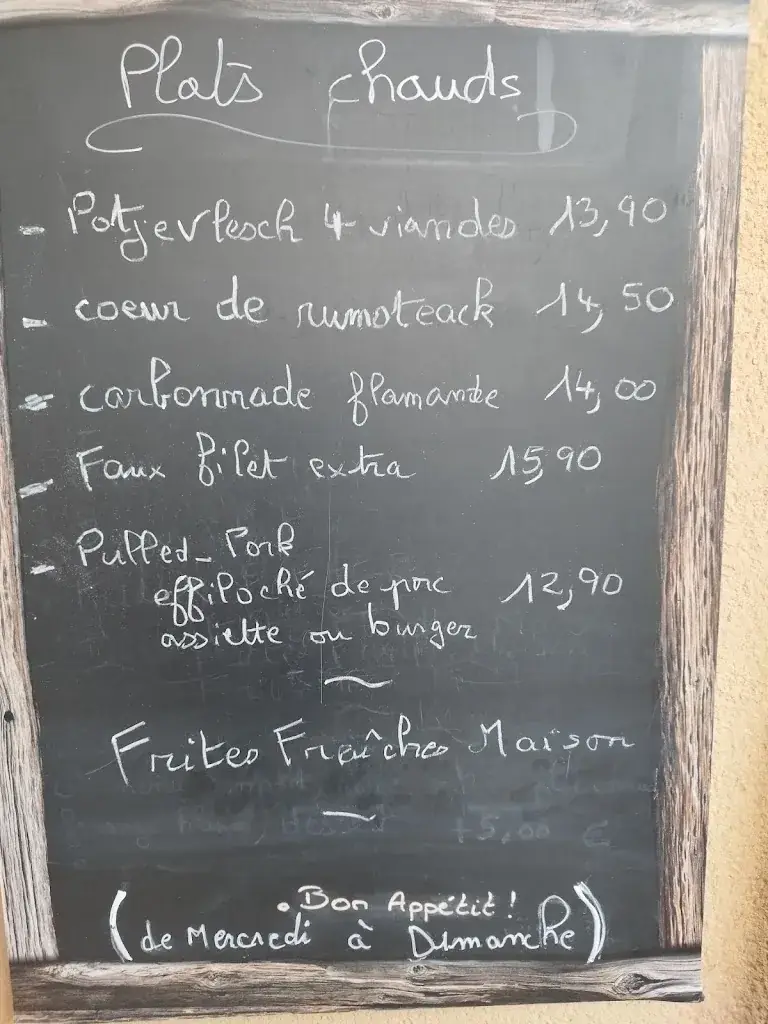 Plats chauds
- Potjevlesch 4 viandes 13,90
- coeur de rumsteack 14,50
- carbonnade flamande 14,00
- Faux filet extra 15,90
- Pulled-Pork
effiloché de porc 12,90
assiette ou burger
Frites Fraîches Maison
dessert +5,00 €
. Bon Appétit !
(de Mercredi à Dimanche)